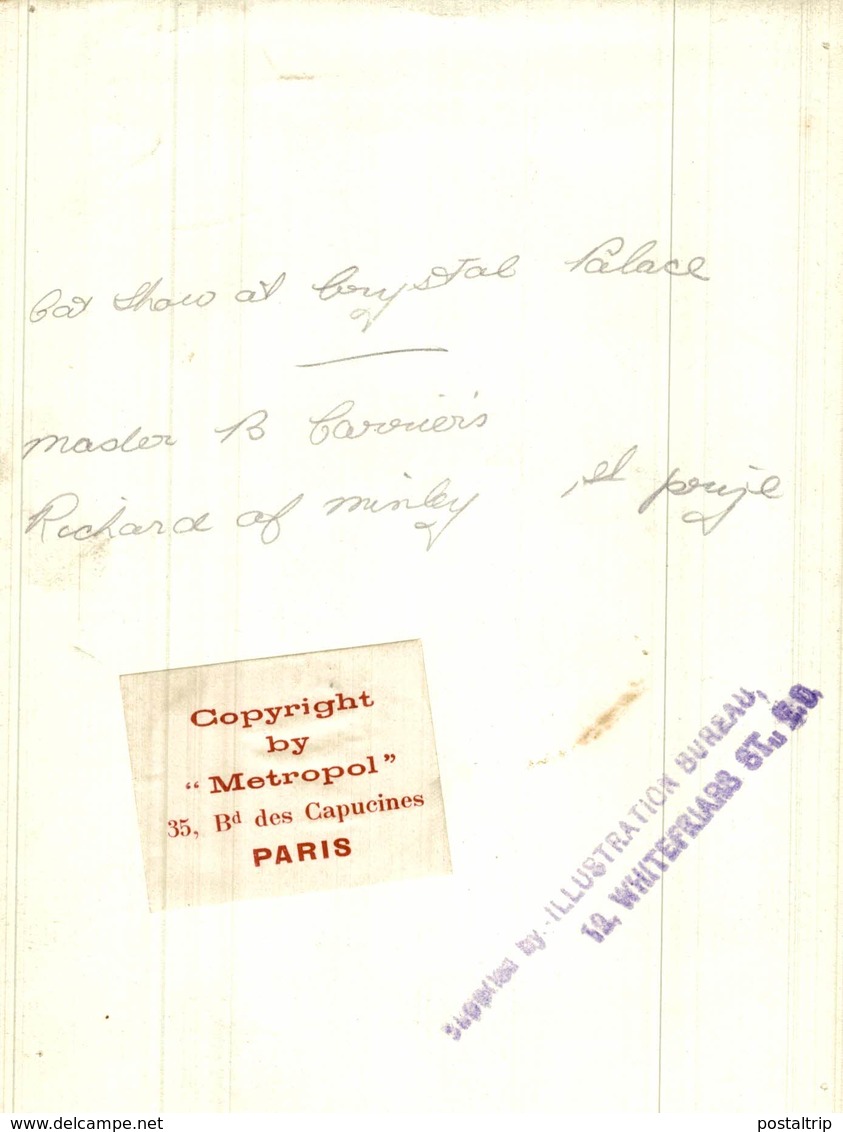 Cat Show at Crystal Palace
Master B Carrier's
Richard of Minley 1st prize
Copyright
by
“Metropol”
35, Bd des Capucines
PARIS
Supplied by ILLUSTRATION BUREAU,
12, WHITEFRIARS ST., E.C.
www.delcampe.net
postaltrip